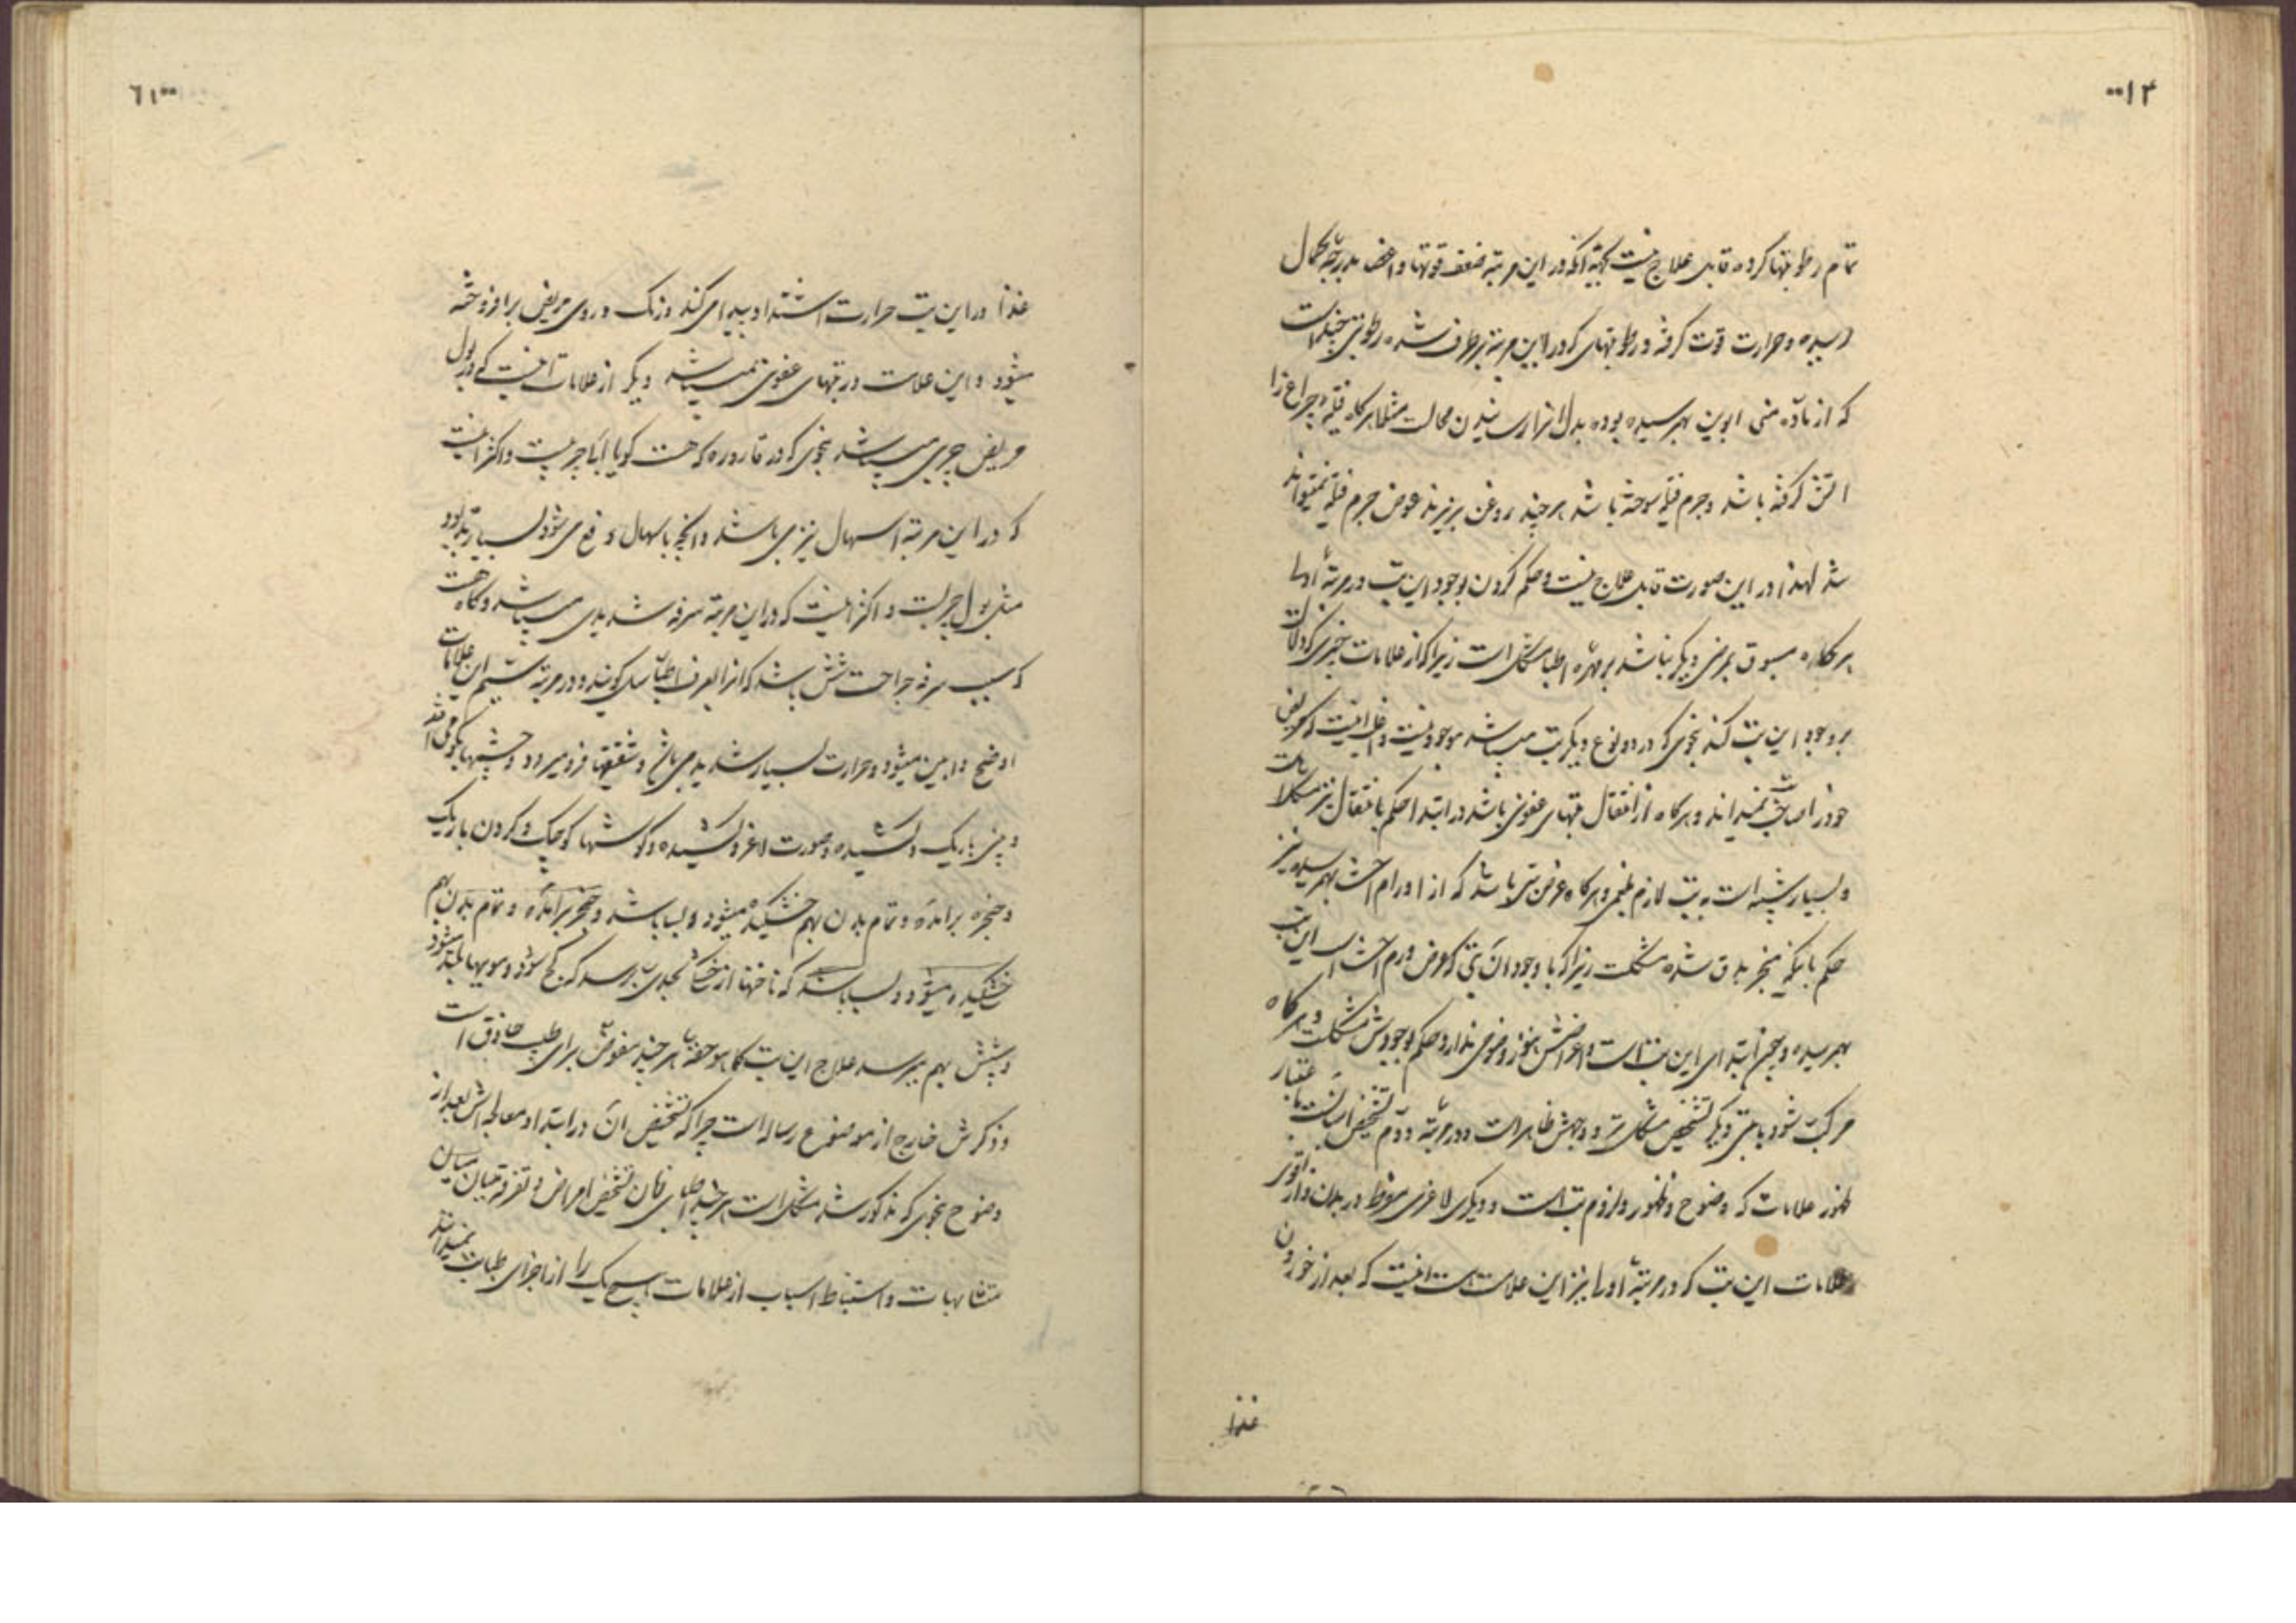 ۱۴
تمام رطوبتها کرده قابل علاج نیست بجهة آنکه در این مرتبه ضعف قوتها و اعضا بدرجهٔ کمال
رسیده و حرارت قوت کرفته و رطوبتهای که در این مرتبه برطرف شده رطوبتی چند است
که از ماده منی ابوین بهم رسیده بوده بدل انرا رسانیدن محالست مثلا هرکاه فتیلهٔ چراغ را
اتش کرفته باشد و جرم فتیله سوخته باشد هر چند روغن بریزند عوض جرم فتیله نمیتواند
شد لهذا در این صورت قابل علاج نیست و حکم کردن بوجود این تب در مرتبهٔ اولی
هرکاه مسبوق بمرض دیکر نباشد بر مهرهٔ اطبا مشکل است زیرا که از علامات چیزی که دلالت
بر وجود این تب کند بنحوی که در دو نوع دیکر تب میباشد موجود نیست و اغلب اینست که مریض
خود را صاحب تب نمیداند و هرکاه از انتقال تبهای عفونی باشد در ابتدا حکم بانتقال نیز مشکلا است
و بسیار شبیه است به تب لازم بلغمی و هرکاه عرض تبی باشد که از اورام احشا بهم رسیده نیز
حکم بانکه منجر بدق شده مشکلست زیرا که با وجود آن تبی که عرض ورم احشا است این تب
بهم رسیده و چون ابتدای این تب است و اعراضش هنوز وضوحی ندارد حکم بوجودش مشکلست و هرکاه
مرکب شود با تبی دیکر تشخیص مشکل‌تر و وجهش ظاهر است و در مرتبهٔ دوم تشخیص آسانست باعتبار
ظهور علامات که وضوح و ظهور و لزوم تب است و دیکری لاغری مفرط در بدن و از اقوی
علامات این تب که در مرتبهٔ اولی نیز این علامت هست اینست که بعد از خوردن
غذا
۶۱
غذا در این تب حرارت اشتداد پیدا می کند و رنک و روی مریض برافروخته
میشود و این علامت در تبهای عفونی نمیباشد و دیکر از علامات آنست که در بول
مریض چربی میباشد بنحوی که در قاروره که هست کویا آب چربیست و اکثر اینست
که در این مرتبه اسهال نیز می باشد و انچه باسهال دفع می شود بسیار بدبو
مثل بول چربست و اکثر اینست که در این مرتبه سرفه شدیدی میباشد و کاه هست
که سبب سرفه جراحت شش باشد که انرا بعرف اطبا سل کویند و در مرتبه سیم این علامات
اوضح و ابین میشود و حرارت بسیار شدید می باشد و شقیقها فرو میرود و چشمها بکودی می افتد
و بینی باریک و کشیده و صورت لاغر و کشیده و کوشها کوچک و کردن باریک
و حنجره برآمده و تمام بدن بهم خشکیده میشود و بسا باشد و حنجره برآمده و تمام بدن بهم
خشکیده میشود و بسا باشد که ناخنها از خشکی بجدی برسد که کج شود و مویها بلند شود
و شپش بهم میرسد علاج این تب کما هو حقه هر چند مفوض برای طبیب حاذق است
و ذکرش خارج از موضوع رساله است چرا که تشخیص ان در ابتدا و معالجه‌اش بعد از
وضوح بنحوی که مذکور شد مشکل است هر چند اطبای فرنک تشخیص امراض و تفرقه میان
متشابهات و استنباط اسباب از علامات هیچ یک را از اجزای طبابت نمیدانند